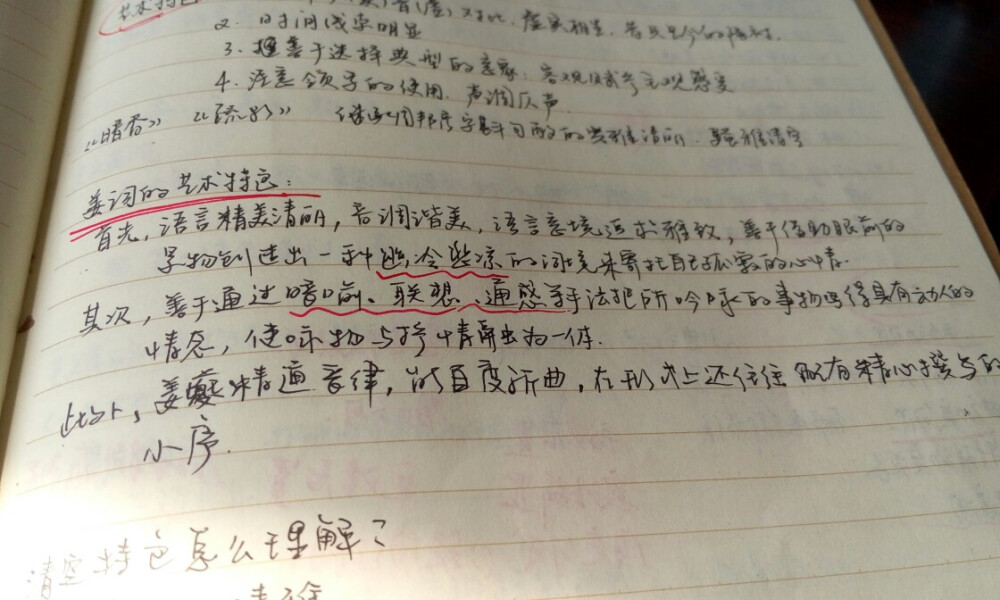 艺术特色
2. 时间线索明显 虚实相生
3. 擅善于选择典型的意象 客观
4. 注意领字的使用 声调仄声
《暗香》 《疏影》
姜词的艺术特色:
首先,语言精美清丽,音调谐美,语言意境追求雅致,善于借助眼前的
景物创造出一种幽冷悲凉的词境来寄托自己孤寂的心情.
其次,善于通过暗喻、联想、通感等手法把所吟咏的事物写得具有动人的
情态,使咏物与抒情融为一体.
此外,姜夔精通音律,能自度新曲,在形式上还往往配有精心撰写的
小序.
清空特色怎么理解?